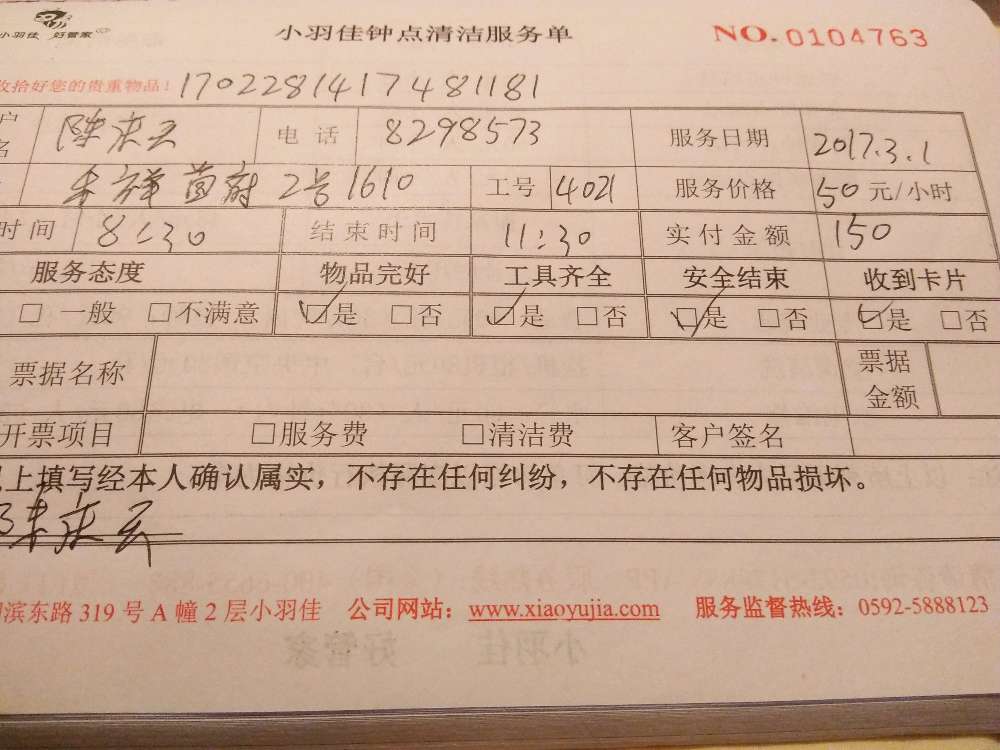 小羽佳 好管家
小羽佳钟点清洁服务单
NO.0104763
收拾好您的贵重物品! 1702281417481181
户名 陈来云 电话 8298573 服务日期 2017.3.1
首府2号1610 工号 4021 服务价格 50元/小时
时间 8:30 结束时间 11:30 实付金额 150
服务态度 物品完好 工具齐全 安全结束 收到卡片
□ 一般 □不满意 ☑是 □否 ☑是 □否 ☑是 □否 ☑是 □否
票据名称 票据金额
开票项目 □服务费 □清洁费 客户签名
上填写经本人确认属实，不存在任何纠纷，不存在任何物品损坏。
陈来云
滨东路319号A幢2层小羽佳 公司网站：www.xiaoyujia.com 服务监督热线：0592-5888123